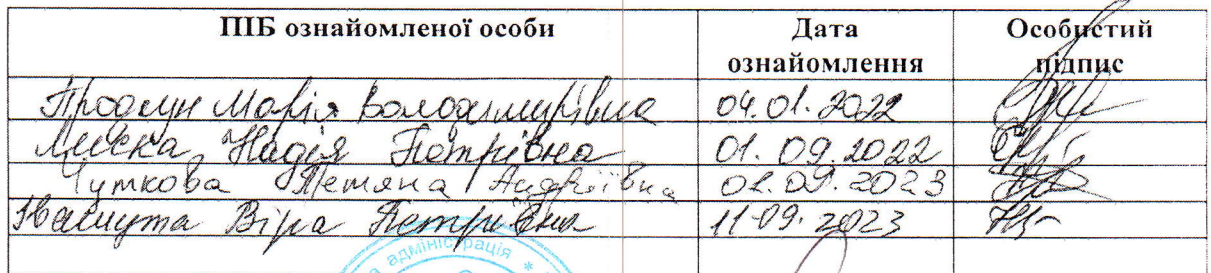 ПІБ ознайомленої особи Дата ознайомлення Особистий підпис
Марія Володимирівна 04.01.2022
Надія Петрівна 01.09.2022
Чуткова Тетяна Андріївна 01.09.2023
Віра Петрівна 11.09.2023
адміністрація